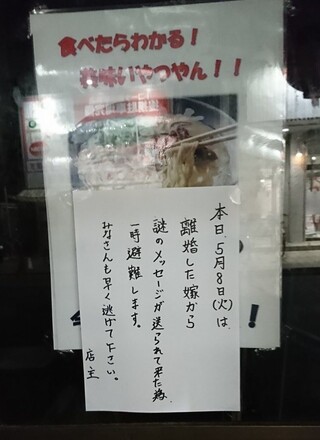 食べたらわかる！
美味いやつやん！！
本日5月8日(火)は、
離婚した嫁から
謎のメッセージが送られて来た為、
一時避難します。
みなさんも早く逃げて下さい。
店主